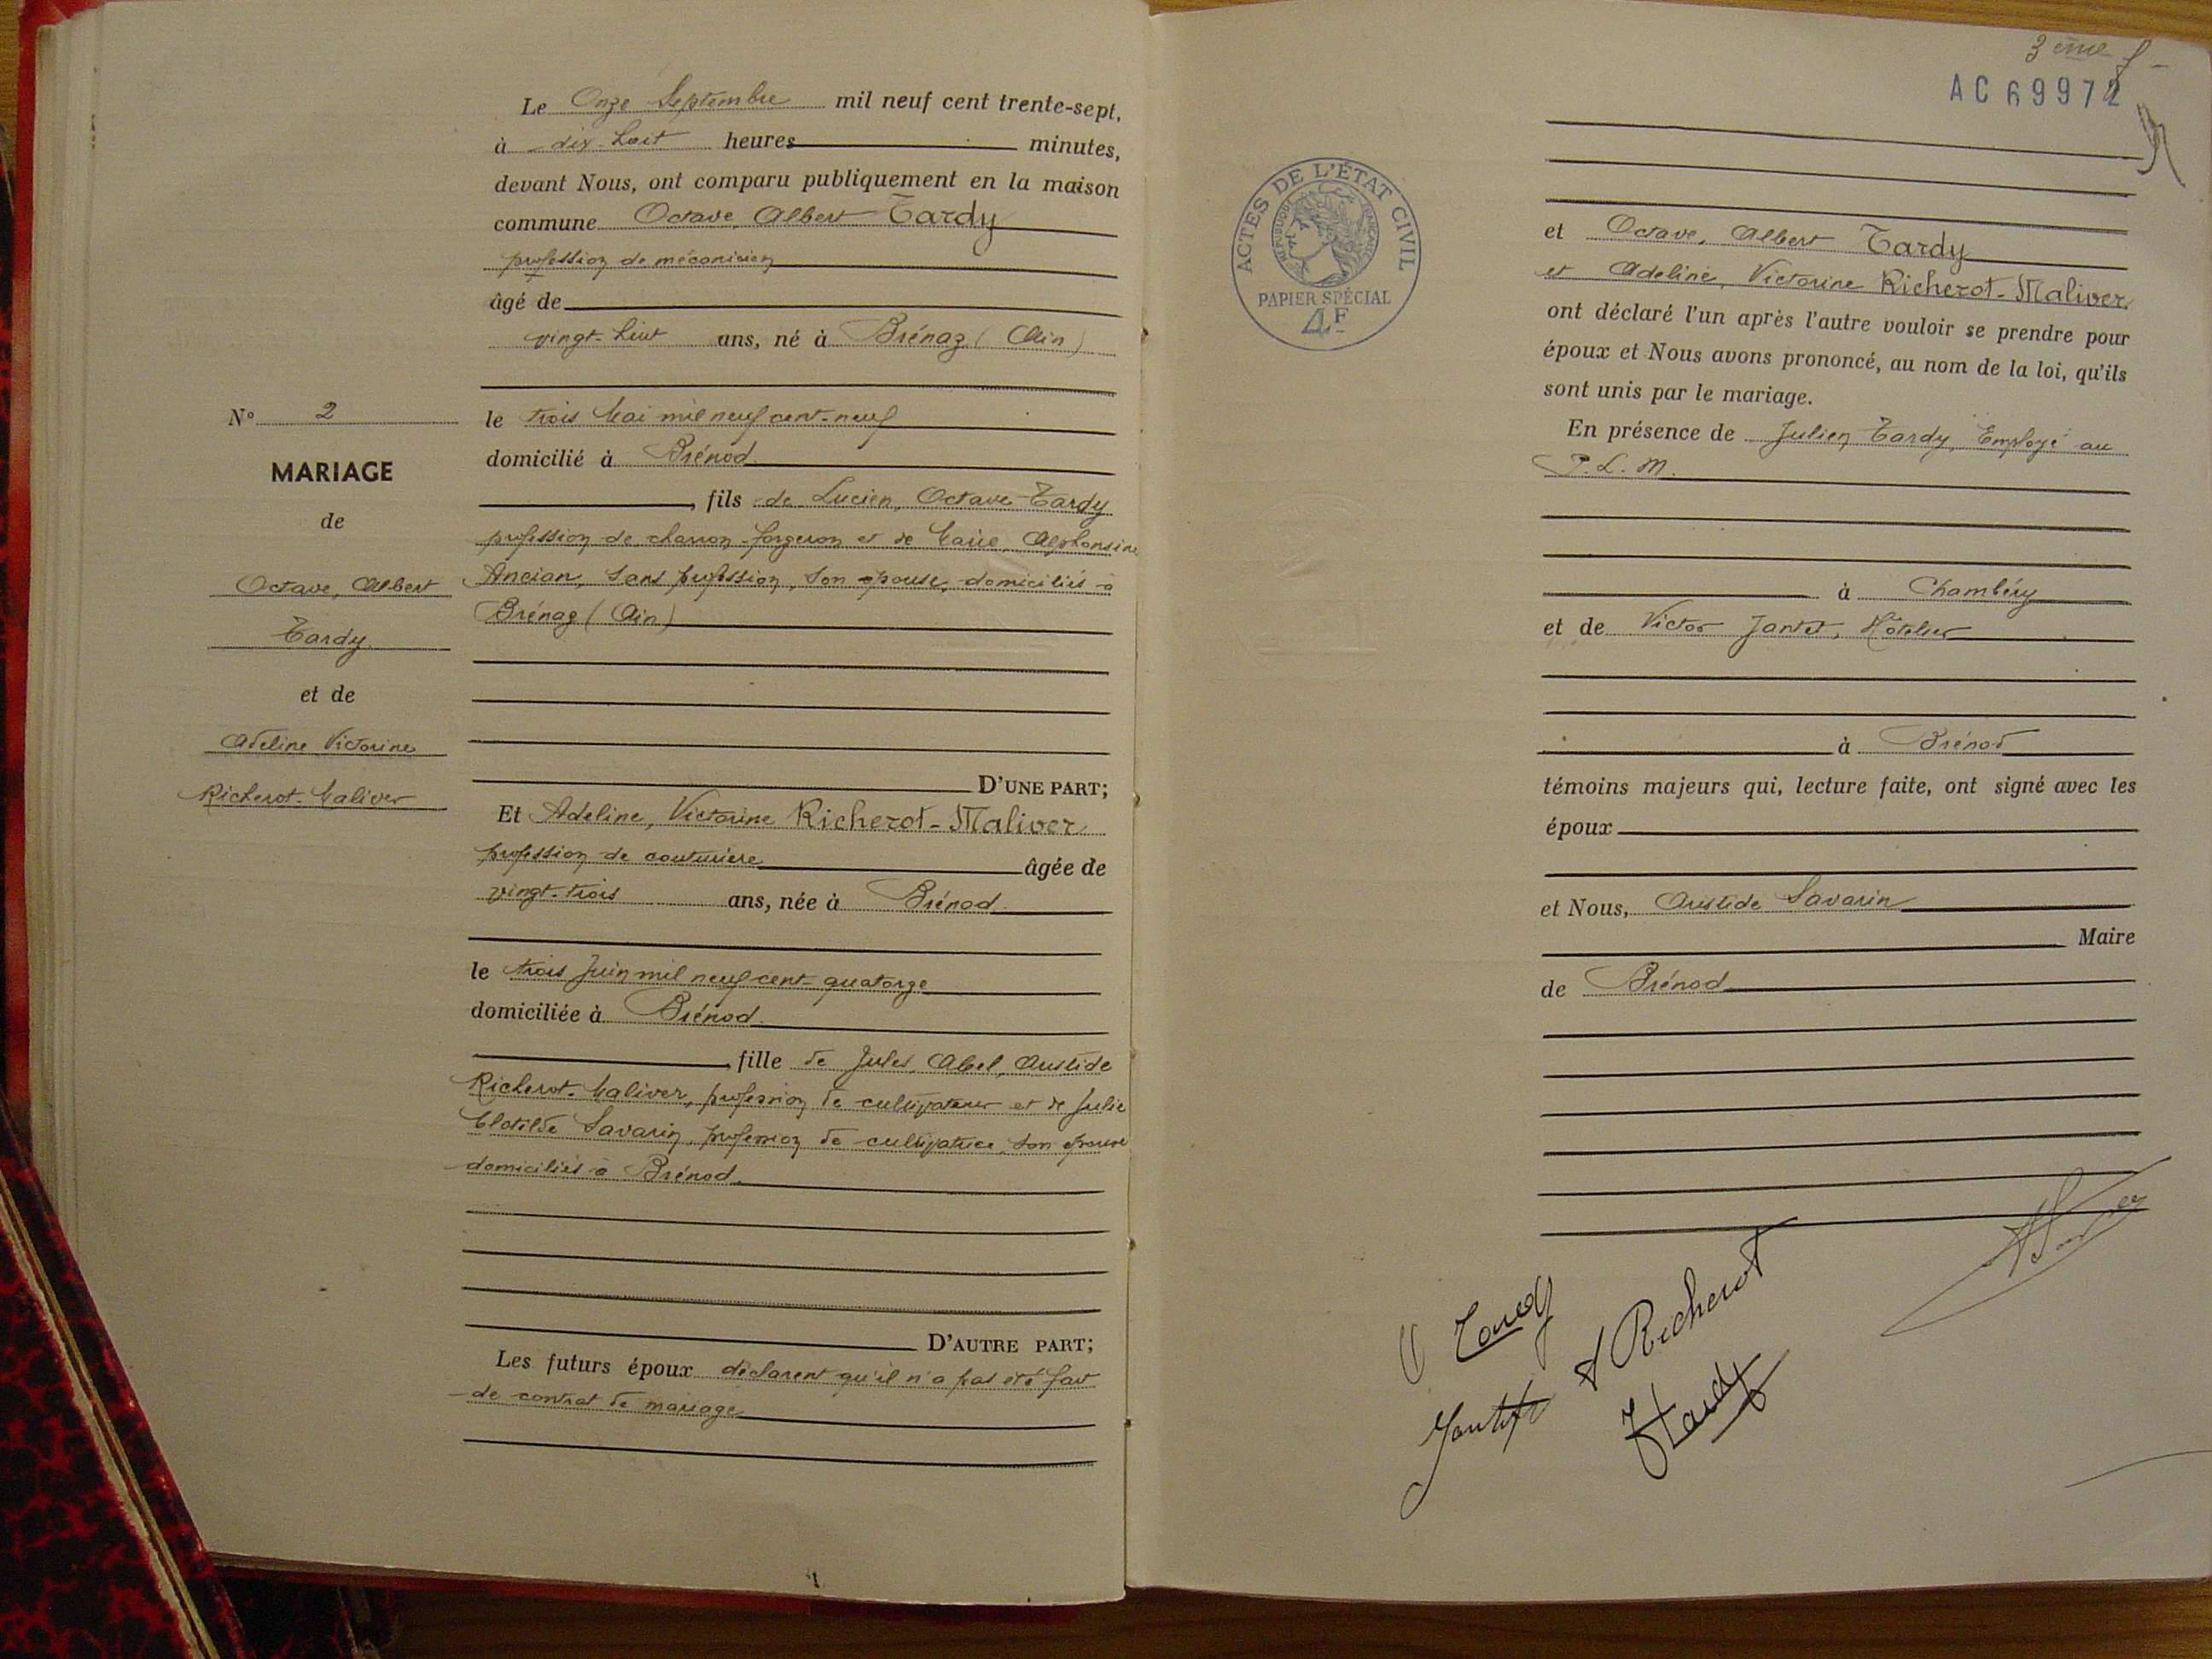 Le Onze Septembre mil neuf cent trente-sept,
à dix-huit heures minutes,
devant Nous, ont comparu publiquement en la maison
commune Octave, Albert Tardy
profession de mécanicien
âgé de
vingt-huit ans, né à Brénaz (Ain)
N° 2
le trois Mai mil neuf cent-neuf
MARIAGE
domicilié à Brénod
de
, fils de Lucien, Octave Tardy
profession de charron-forgeron et de Marie, Alphonsine
Octave, Albert
Ancian, sans profession, son épouse, domiciliés à
Tardy
Brénaz (Ain)
et de
Adeline Victorine
Richerot-Maliver
D'UNE PART;
Et Adeline, Victorine Richerot-Maliver
profession de couturière âgée de
vingt-trois ans, née à Brénod
le trois Juin mil neuf cent-quatorze
domiciliée à Brénod
, fille de Jules, Abel, Aristide
Richerot-Maliver, profession de cultivateur et de Julie
Clotilde Savarin, profession de cultivatrice, son épouse
domiciliés à Brénod.
D'AUTRE PART;
Les futurs époux déclarent qu'il n'a pas été fait
de contrat de mariage
3ème f
AC 69972
ACTES DE L'ÉTAT CIVIL
RÉPUBLIQUE FRANÇAISE
PAPIER SPÉCIAL
4F
et Octave, Albert Tardy
et Adeline, Victorine Richerot-Maliver
ont déclaré l'un après l'autre vouloir se prendre pour
époux et Nous avons prononcé, au nom de la loi, qu'ils
sont unis par le mariage.
En présence de Julien Tardy, Employé au
P.L.M.
à Chambéry
et de Victor Jantet, Hôtelier
à Brénod
témoins majeurs qui, lecture faite, ont signé avec les
époux
et Nous, Aristide Savarin
Maire
de Brénod
Tardy
A Richerot
Jantet
J Tardy